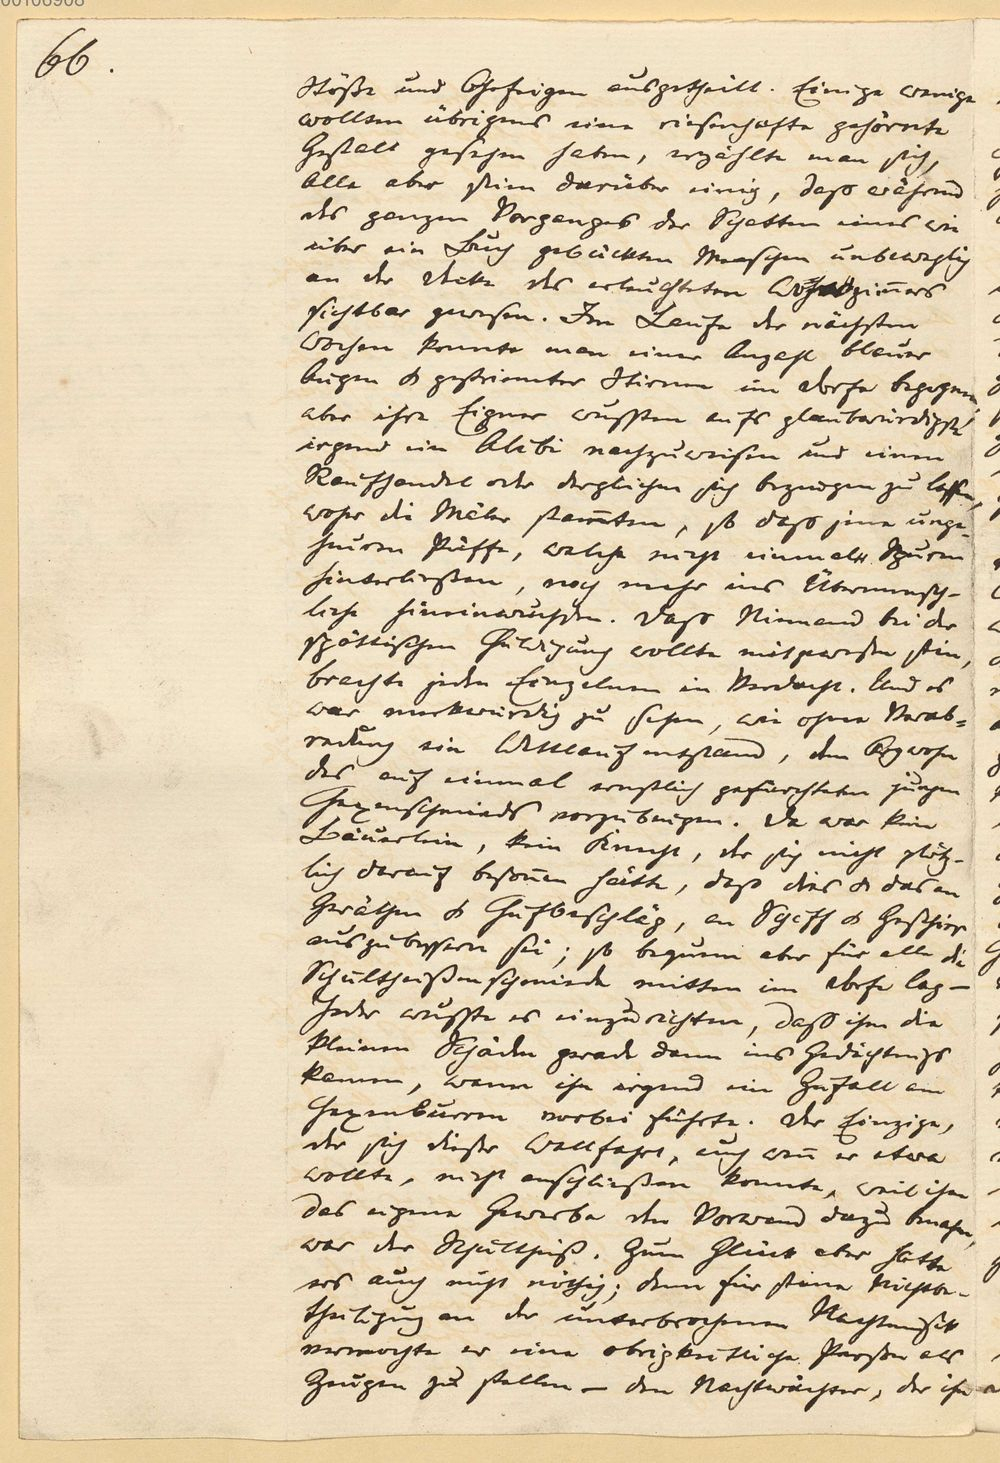 60106908
66.
Stöße und Ohrfeigen ausgetheilt. Einige wenige
wollten übrigens eine riesenhafte gehörnte
Gestalt gesehen haben, erzählte man sich,
Alle aber seien darüber einig, daß während
des ganzen Vorganges der Schatten eines wie
über ein Buch gebückten Menschen unbeweglich
an der Decke des erleuchteten Wohnzimmers
sichtbar gewesen. Im Laufe der nächsten
Wochen konnte man einer Anzahl blauer
Augen & gestriemter Stirnen im Dorfe begegnen,
aber ihre Eigner wußten aufs glaubwürdigste
irgend ein Alibi nachzuweisen und einen
Raufhandel oder dergleichen sich bezeugen zu lassen,
woher die Mäler stammten, so daß jene unge-
heuren Püffe, welche nicht einmal Spuren
hinterließen, noch mehr ins Übermensch-
liche hineinwuchsen. Daß Niemand bei der
spöttischen Huldigung wollte mitgewesen sein,
brachte jeden Einzelnen in Verdacht. Und es
war merkwürdig zu sehen, wie ohne Verab-
redung ein Wettlauf entstand, dem Argwohn
des auf einmal ernstlich gefürchteten jungen
Hexenschmieds vorzubeugen. Da war kein
Bäuerlein, kein Knecht, der sich nicht plötz-
lich darauf besonnen hätte, daß dies & das an
Geräthen & Hufbeschläg, an Schiff & Geschirr
auszubessern sei; so bequem aber für alle die
Schultheißenschmiede mitten im Dorfe lag –
Jeder wußte es einzurichten, daß ihm die
kleinen Schäden gerade dann ins Gedächtniß
kamen, wenn ihn irgend ein Zufall am
Hexenburren vorbei führte. Der Einzige,
der sich dieser Wallfahrt, auch wenn er etwa
wollte, nicht anschließen konnte, weil ihm
das eigene Gewerbe den Vorwand dazu benahm,
war der Schultheiß. Zum Glück aber hatte
ers auch nicht nöthig; denn für seine Nichtbe-
theiligung an der unterbrochenen Nachtmusik
vermochte er eine obrigkeitliche Person als
Zeugen zu stellen – den Nachtwächter, der ihn